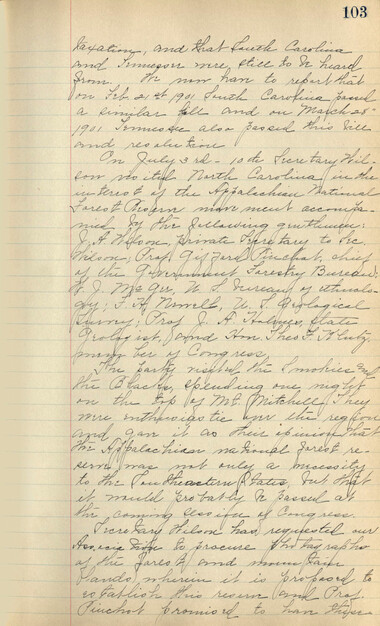 103
taxation, and that South Carolina
and Tennessee were still to be heard
from. We now have to report that
on Feb. 21st 1901 South Carolina passed
a similar bill and on March 28th
1901 Tennessee also passed this bill
and resolution
On July 3rd - 10th Secretary Wil-
son visited North Carolina in the
interest of the Appalachian National
Forest Reserve movement accompa-
nied by the following gentlemen:
J. A. Wilson, private Secretary to Sec.
Wilson; Prof. Pinchot, chief
of the Government Forestry Bureau;
W. J. McGee, U. S. Bureau of Ethnolo-
gy; F. H. Newell, U. S. Geological
Survey; Prof. J. A. Holmes, State
Geologist, and Hon. Theo. F. Klutz,
member of Congress.
The party visited the Smokies and
the Blacks, spending one night
on the top of Mt. Mitchell. They
were enthusiastic over the region
and gave it as their opinion that
the Appalachian national forest re-
serve was not only a necessity
to the Southeastern States, but that
it would probably be passed at
the coming session of Congress.
Secretary Wilson has requested our
Association to procure photographs
of the forest and mountain
lands wherein it is proposed to
establish this reserve and Prof.
Pinchot promised to have these